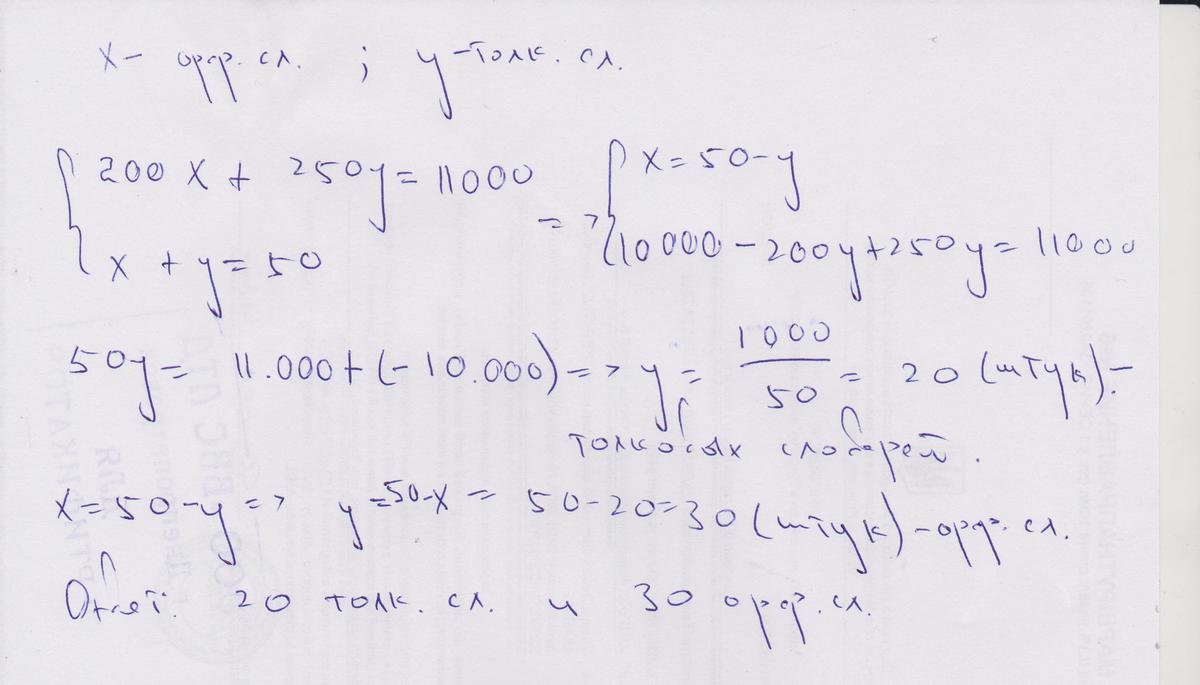 x – орф. сл. ; y – толк. сл.
{ 200x + 250y = 11000
x + y = 50
=> { x = 50 – y
10000 – 200y + 250y = 11000
50y = 11.000 + (–10.000) => y = 1000/50 = 20 (штук) –
толковых словарей.
x = 50 – y => y = 50-x = 50 – 20 = 30 (штук) – орф. сл.
Ответ: 20 толк. сл. и 30 орф. сл.